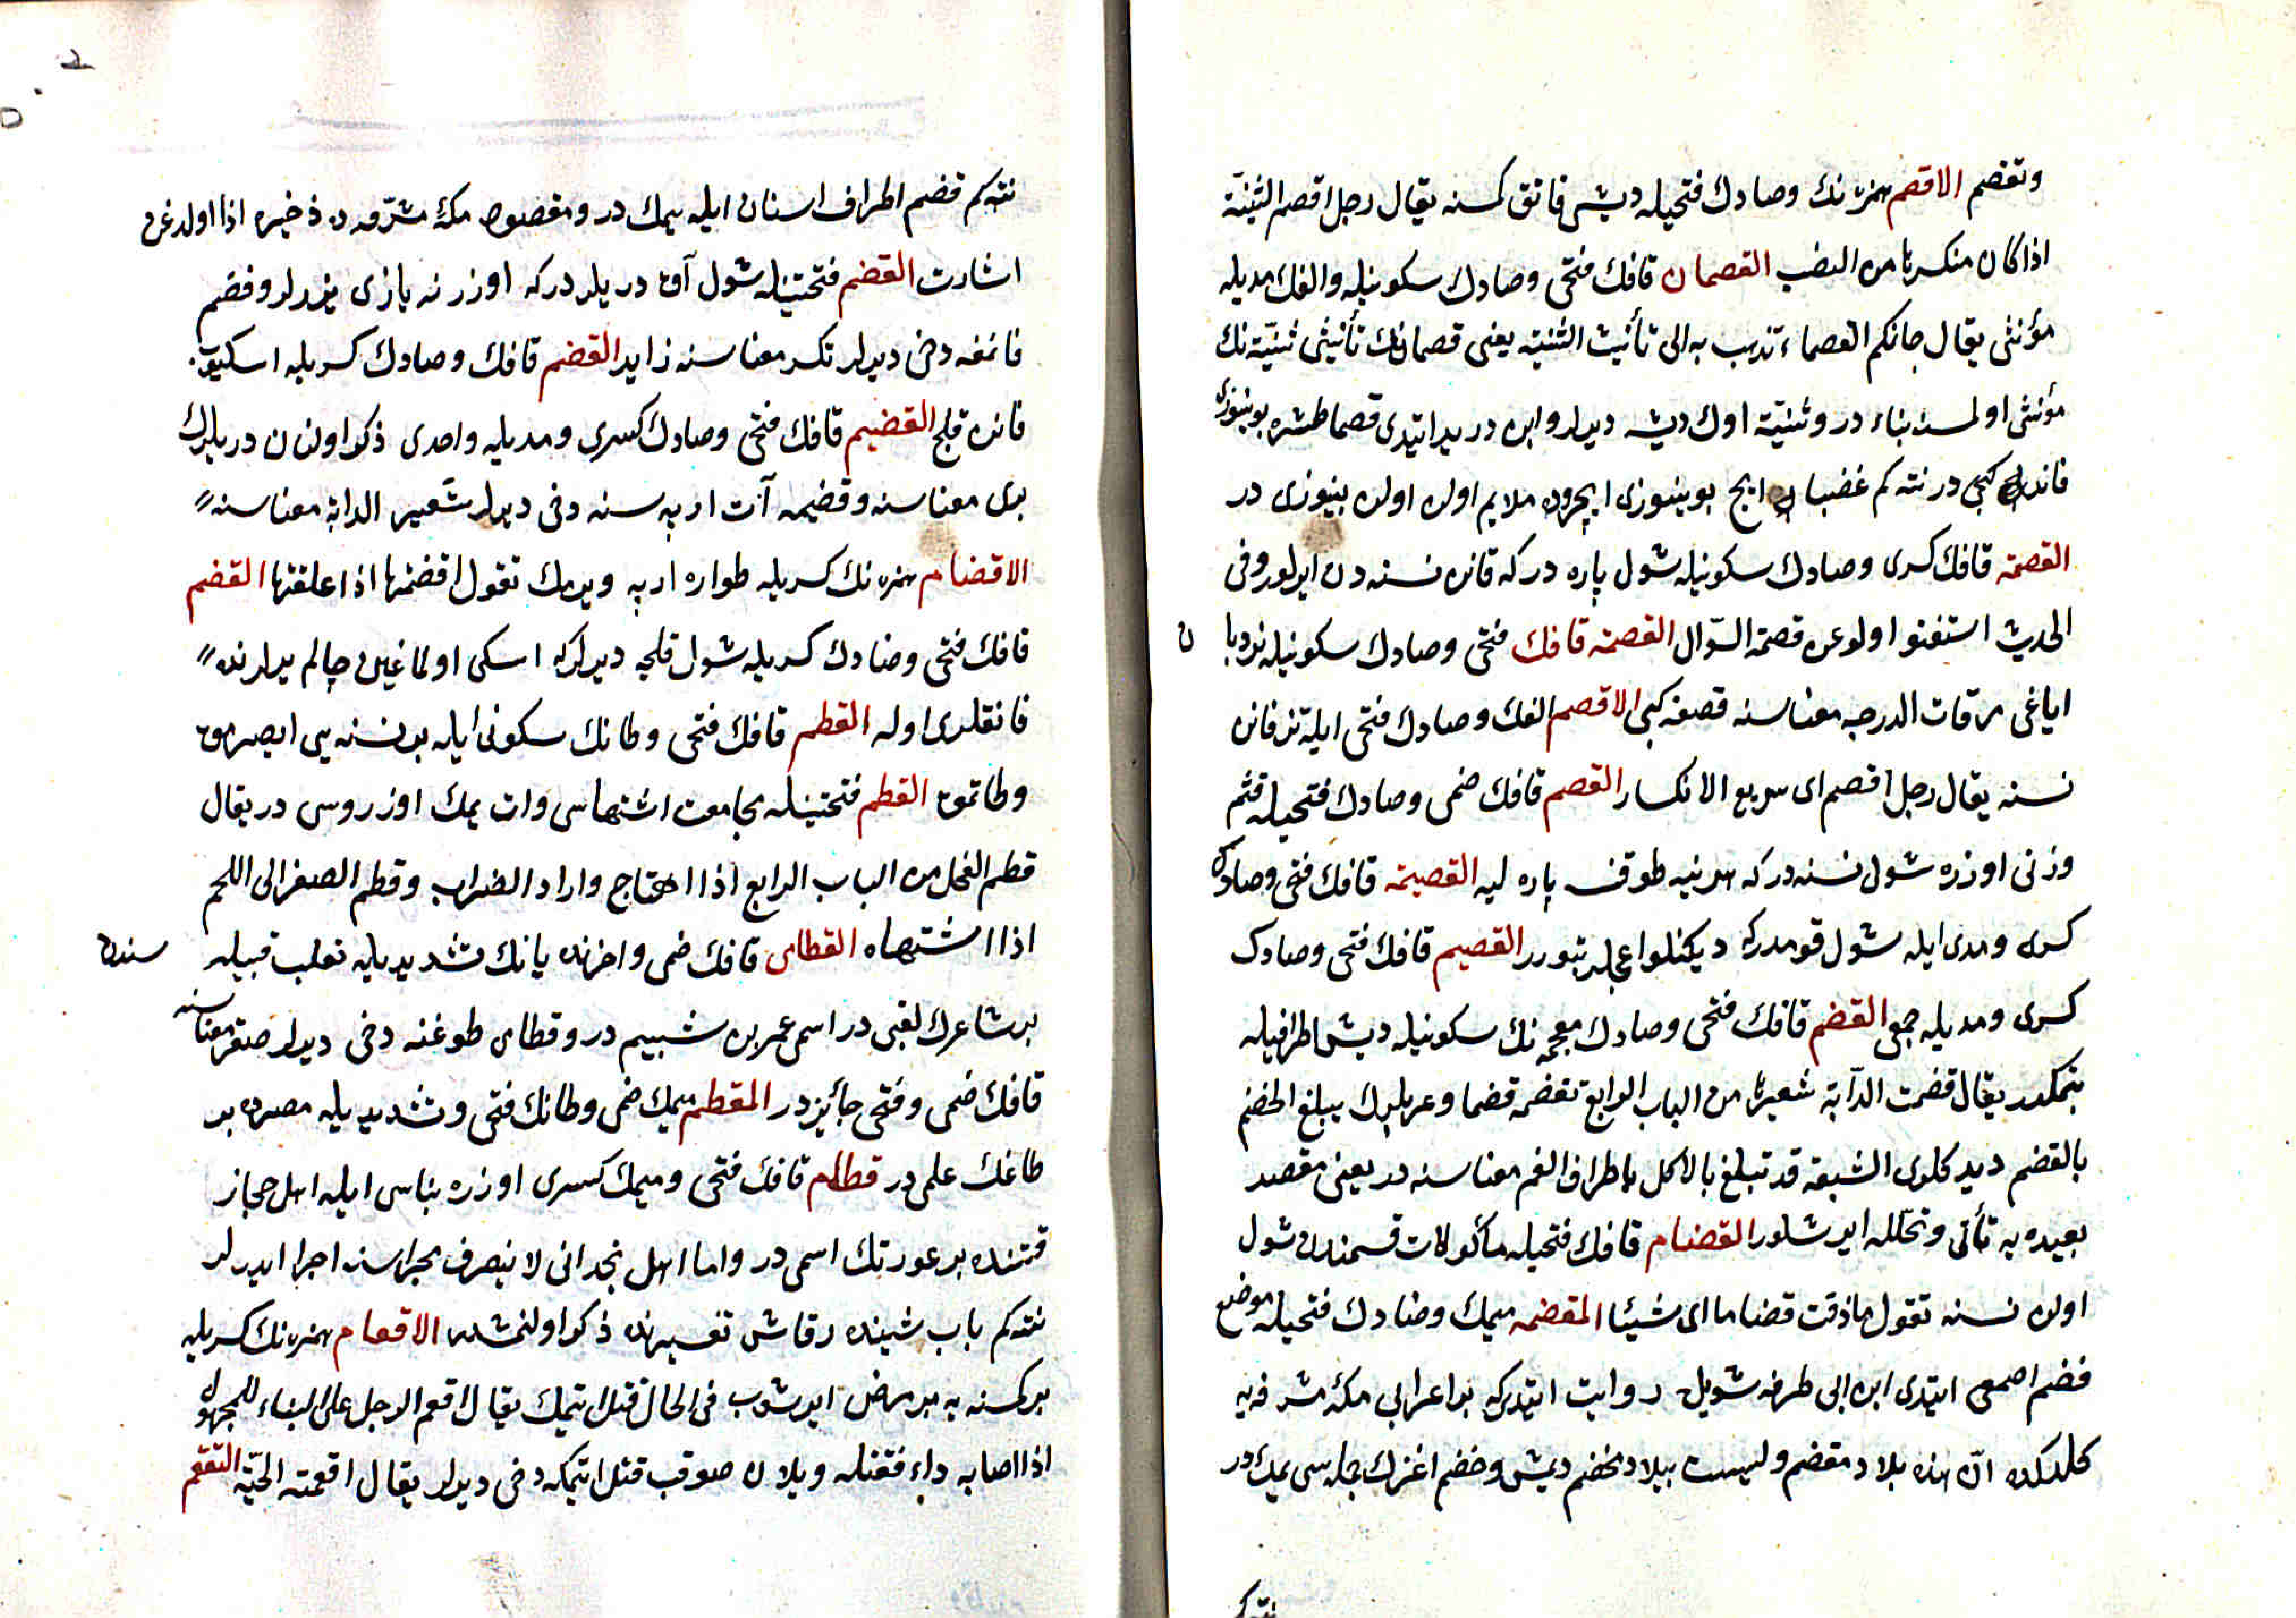 وتقضم الاقصم همزه نك وصادك فتحيله ديشى قاتق كمسنه يقال رجل اقصم الثنيّة
اذا كان منكسرها من النصف القصماء ن قافك فتحى وصادك سكونيله والفك مديله
مؤنثى يقال جائكم القصماء تذهب به الى تأنيث الثنيّه يعنى قصمانك تأنيثى ثنيّه نك
مؤنثى اولمسنه بناء در وثنيّه اوك ديشه ديرلر وابن دريد ايتدى قصما طشره بوينوزى
كبى در نته كم غضباء ايچ بوينوزى ايچروده ملايم اولان اولان بينوزى در
القصمه قافك كسرى وصادك سكونيله شول پاره در كه قانن نسنه دن ايرلور وفى
الحديث استغنوا ولو عن قصمة السّوال القصمة قافك فتحى وصادك سكونيله نردبا ن
اياغى مرقات الدرجه معناسنه قصفه كبى الاقصم الفك وصادك فتحى ايله تز قانن
نسنه يقال رجل اقصم اى سريع الانكسار القصم قافك ضمى وصادك فتحيله قثم
وزنى اوزره شول نسنه در كه هر نيه طوقنه پاره ليه القصيمه قافك فتحى وصادك
كسرى ومدى ايله شول قومدر كه ديكنلو اغجلر بتورر القصيم قافك فتحى وصادك
كسرى ومديله جمعى القضم قافك فتحى وصادك معجمه نك سكونيله ديش اطرافيله
يمكدر يقال قضمت الدآبة شعيرها من الباب الرابع تقضمه قضما وعربلرك يبلغ الخضم
بالقضم ديدكلرى الشبعة قد تبلغ بالاكل باطراف الفم معناسنه در يعنى مقصد
بعيده يه تأنّى وتحلّله ايرشلور القضام قافك فتحيله مأكولات قسمندن شول
اولان نسنه تقول ما ذقت قضاما اى شيئا المقضمه ميمك وضادك فتحيله موضع
قضم اصمعى ايتدى ابن ابى طرفه شويله روايت ايتدى كه بر اعرابى مكّه مشرفه يه
كلدكده انّ هذه بلاد مقضم وليست ببلاد مخضم ديمش وخضم اغزك جمله سى يمك در
نته كم
نته كم قضم اطراف اسنان ايله يمك در ومقصود مكّه مشرّفه ده ذخيره اذا اولدغن
اشارت القضم فتحتينله شول آق دريلر در كه اوزرنه يازى يزرلر وقضم
قانمغه دخى ديرلر تكسر معناسنه زايد القضم قافك وصادك كسريله اسكيوب
قانن قلج القضيم قافك فتحى وصادك كسرى ومديله واحدى ذكر اولنان دريلرك
برى معناسنه وقضيمه آت ارپه سنه دخى ديرلر شعير الدابه معناسنه
الاقضام همزه نك كسريله طواره ارپه ويرمك تقول اقضمتها اذا علفتها القضم
قافك فتحى وضادك كسريله شول قلجه ديرلر كه اسكى اولماغين چالم يرلرنده
قانقلرى اوله القطم قافك فتحى وطانك سكونى ايله بر نسنه يى ايصرمق
وطاتمق القطم فتحتينله مجامعت اشتهاسى وات يمك اوزروسى در يقال
قطم الفحل من الباب الرابع اذا احتاج واراد الضراب وقطم الصقر الى اللحم
اذا اشتهاه القطامى قافك ضمى واخرنده يانك تشديديله تغلب قبيله سندن
بر شاعرك لقبى در اسمى عمر بن شبيم در وقطامى طوغنه دخى ديرلر صقر معناسنه
قافك ضمى وفتحى جائيز در المقطم ميمك ضمى وطانك فتحى وتشديديله مصرده بر
طاغك علمى در قطام قافك فتحى وميمك كسرى اوزره بناسى ايله اهل حجاز
قتنده بر عورتك اسمى در واما اهل نجد انى لا ينصرف مجراسنه اجرا ايدرلر
نته كم باب شينده رقاش تفسيرنده ذكر اولنمشدر الاقعام همزه نك كسريله
بر كسنه يه بر مرض ايرشوب فى الحال قتل ايتمك يقال اقعم الرجل على البناء للمجهول
اذا اصابه داء فقتله ويلان صوقوب قتل ايتمكه دخى ديرلر يقال اقعمته الحيّه التقعم